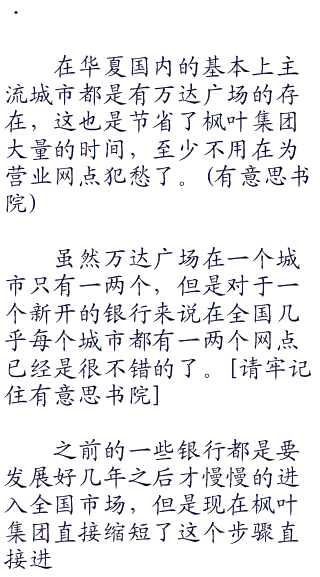 .
在华夏国内的基本上主
流城市都是有万达广场的存
在，这也是节省了枫叶集团
大量的时间，至少不用在为
营业网点犯愁了。(有意思书
院)
虽然万达广场在一个城
市只有一两个，但是对于一
个新开的银行来说在全国几
乎每个城市都有一两个网点
已经是很不错的了。[请牢记
住有意思书院]
之前的一些银行都是要
发展好几年之后才慢慢的进
入全国市场，但是现在枫叶
集团直接缩短了这个步骤直
接进